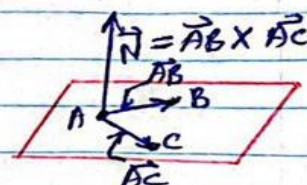 N⃗ = A⃗B⃗ × A⃗C⃗
A⃗B⃗
A
B
C
A⃗C⃗